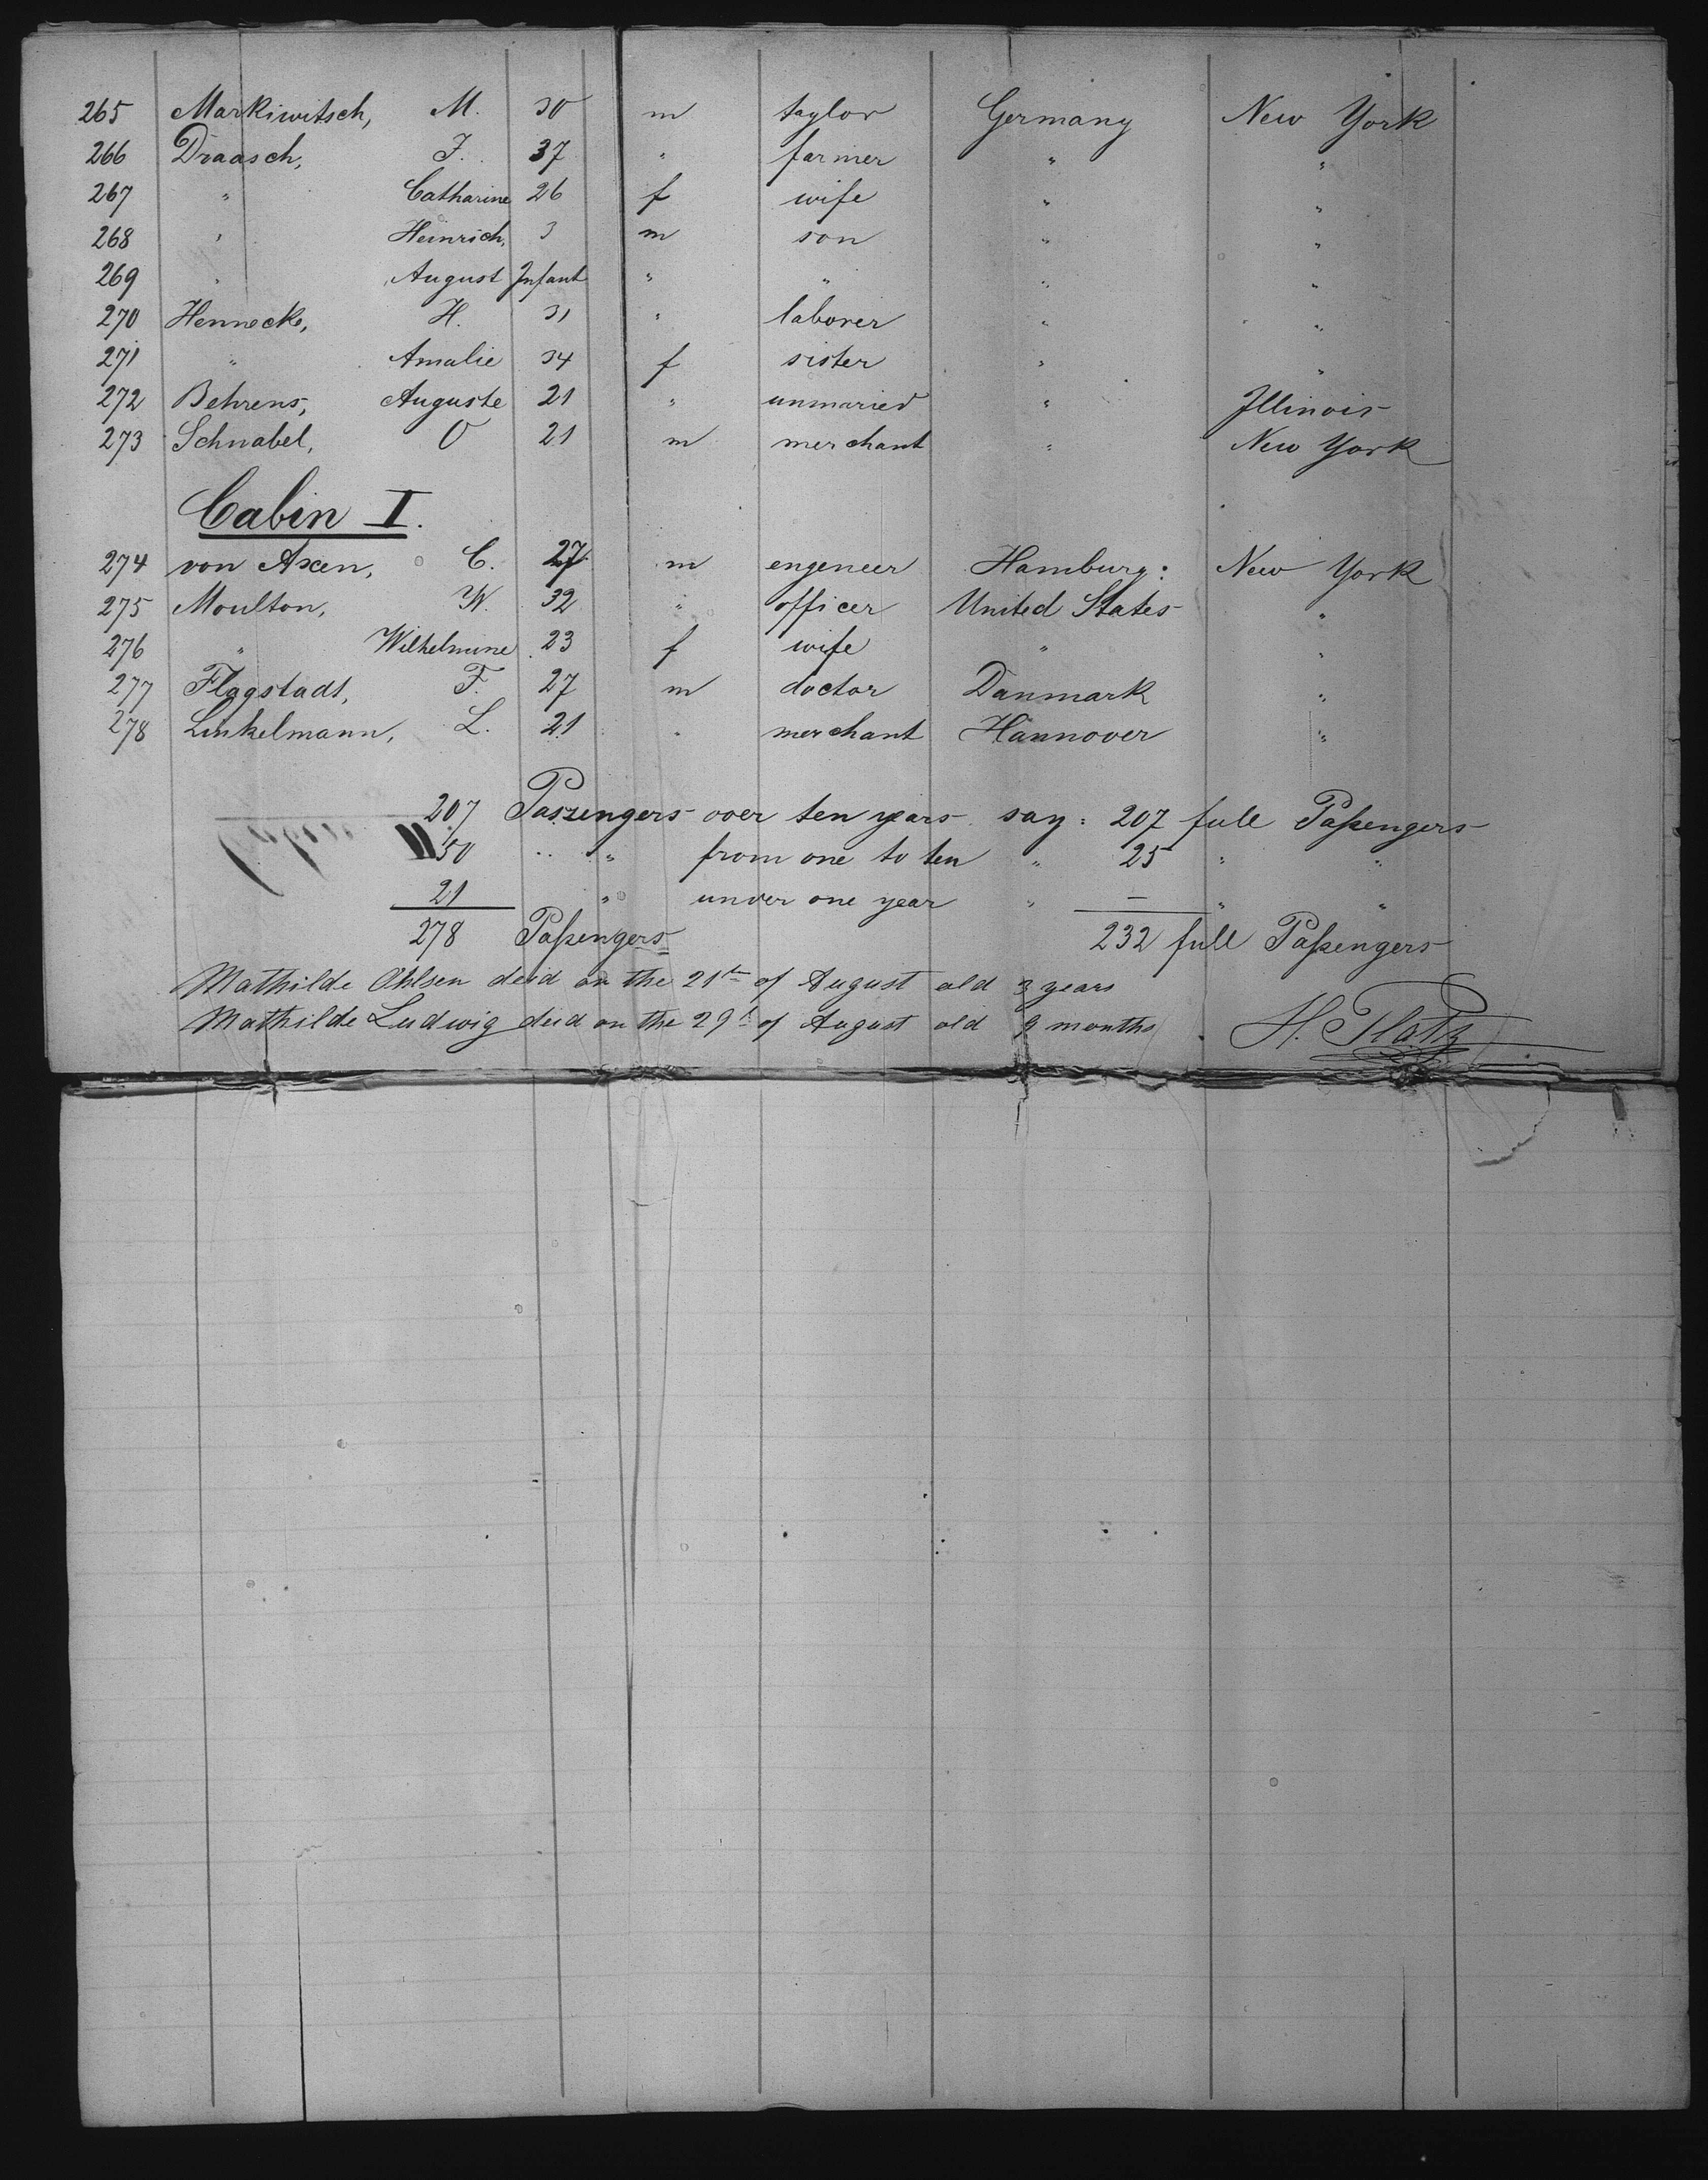 265 Markiwitsch, M. 30 m taylor Germany New York
266 Draasch, J. 37 " farmer " "
267 " Catharine 26 f wife " "
268 " Heinrich, 3 m son " "
269 " August Infant " " " "
270 Hennecke, H. 31 " laborer " "
271 " Amalie 34 f sister " "
272 Behrens, Auguste 21 " unmaried " Illinois
273 Schnabel, O 21 m merchant " New York
Cabin I.
274 von Axen, C. 27. m engeneer Hamburg: New York
275 Moulton, W. 32 " officer United States "
276 " Wilhelmine 23 f wife " "
277 Flagstadt, F. 27 m doctor Danmark "
278 Linkelmann, L. 21 " merchant Hannover "
207 Passengers over ten years say: 207 full Passengers
50 " " from one to ten " 25 " "
21 " under one year " — " "
278 Passengers 232 full Passengers
Mathilde Ohlsen deid on the 21th of August old 3 years
Mathilde Ludwig deid on the 29th of August old 9 months
H. Platz